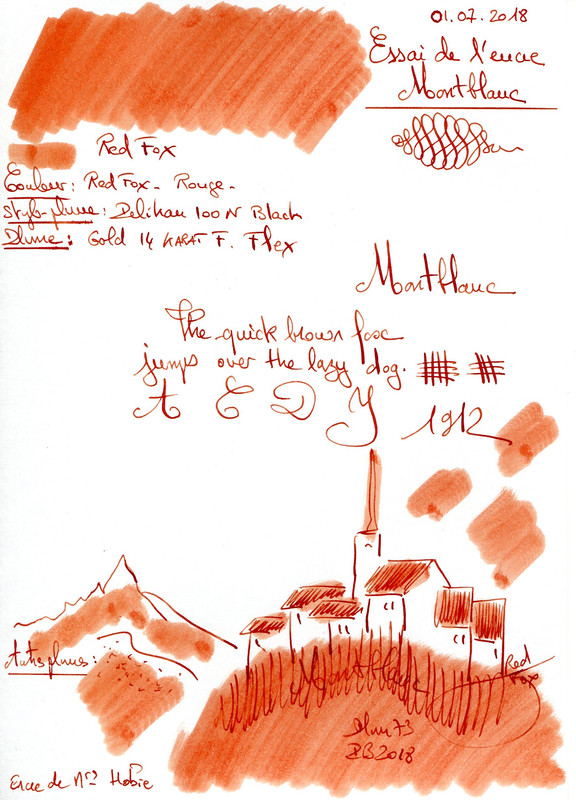 01.07.2018
Essai de l'encre
Montblanc
Red Fox
Couleur: Red Fox - Rouge -
Stylo-plume: Pelikan 100 N Black
Plume: Gold 14 KARAT F. Flex
Montblanc
The quick brown fox
jumps over the lazy dog.
A E D J 1912
Autres plumes:
Montblanc
Red
Fox
Plum 73
PB 2018
Encre de Mrs Hobie